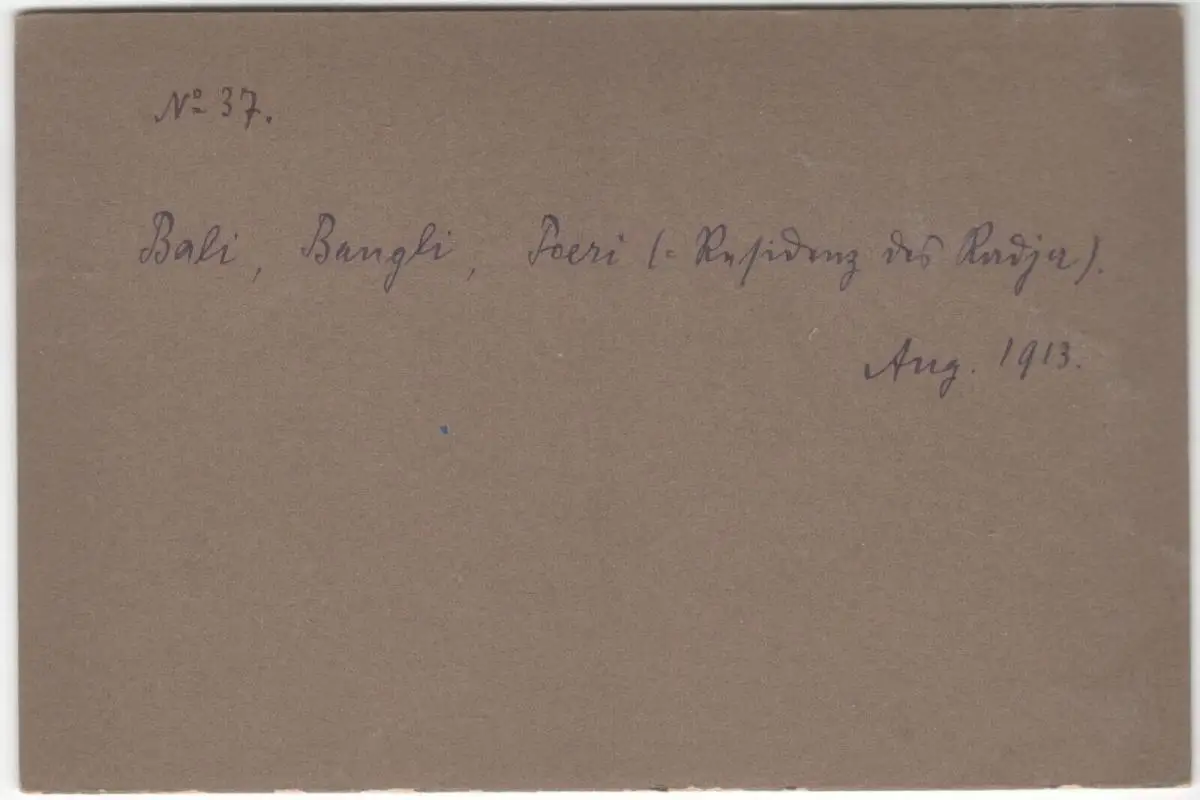 No 37.
Bali, Bangli, Poeri (= Residenz des Radja).
Aug. 1913.